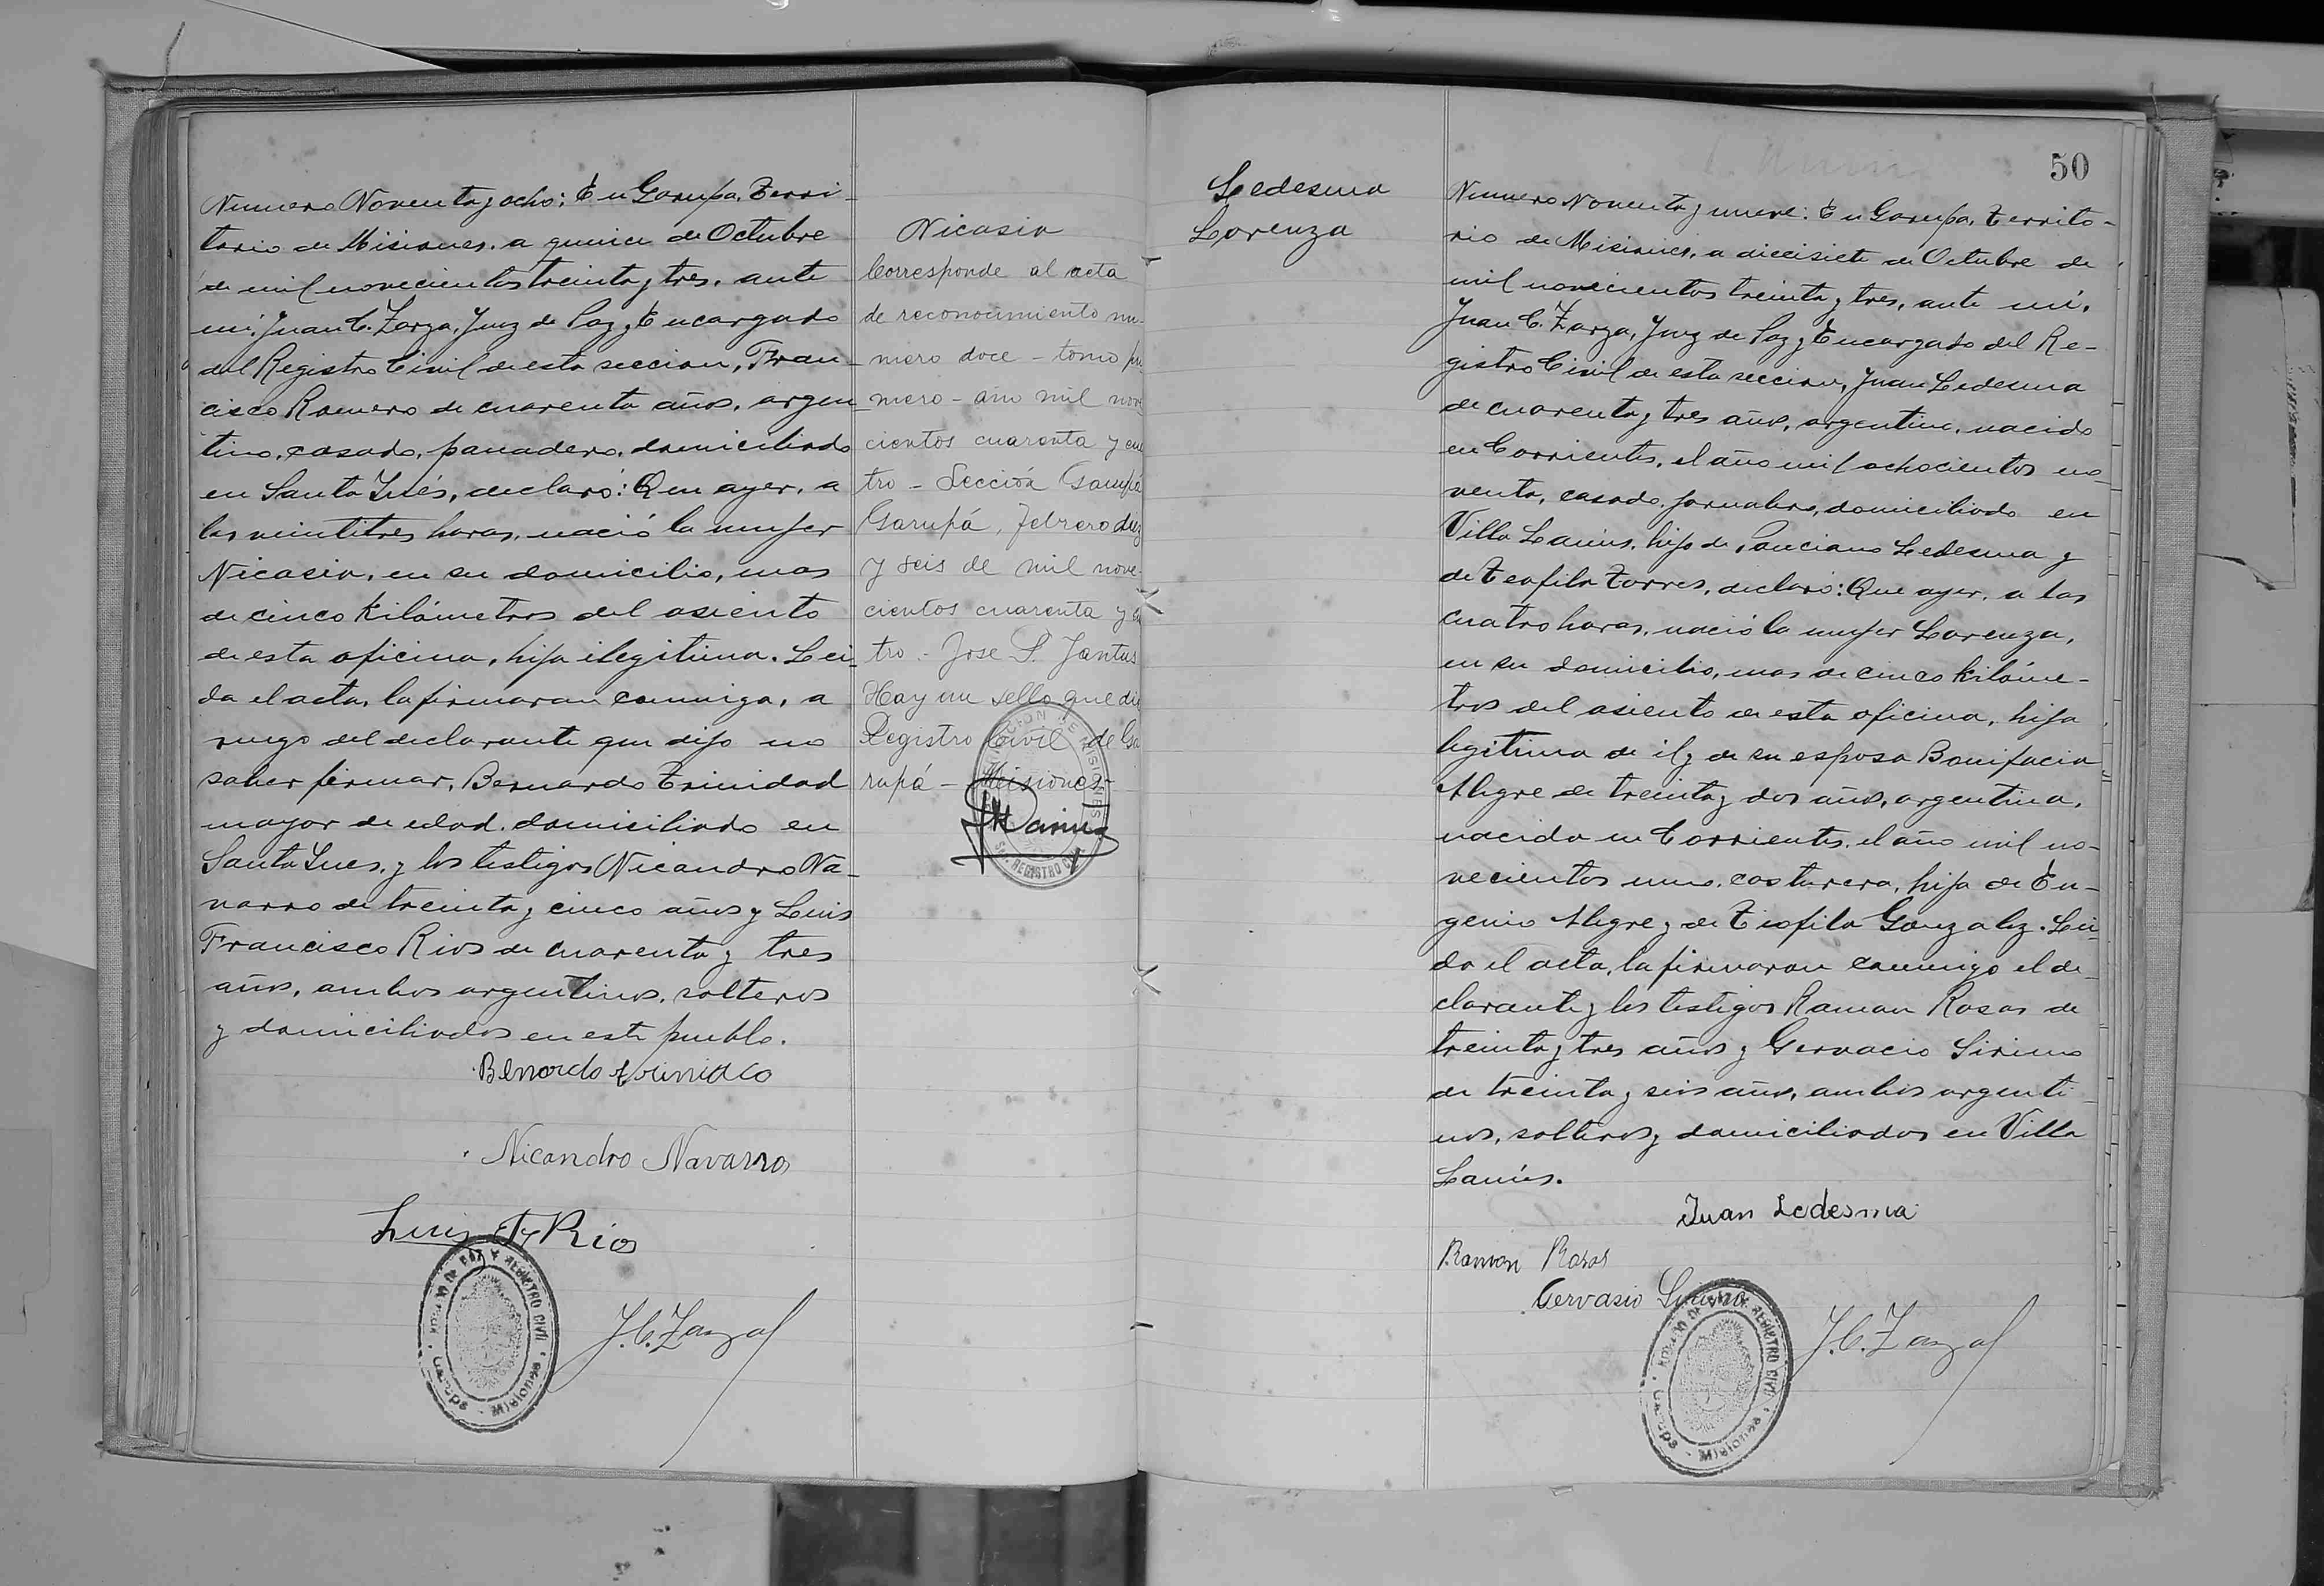 Numero Noventa y ocho: En Garupa, Terri-
torio de Misiones, a quince de Octubre
de mil novecientos treinta y tres, ante
mi, Juan C. Zarza, Juez de Paz y Encargado
del Registro Civil de esta seccion, Fran-
cisco Romero de cuarenta años, argen-
tino, casado, panadero, domiciliado
en Santa Inés, declaró: Que ayer, a
las veintitres horas, nació la mujer
Nicasia, en su domicilio, mas
de cinco kilómetros del asiento
de esta oficina, hija ilegitima. Lei-
da el acta, la firmaron conmigo, a
ruego del declarante que dijo no
saber firmar, Bernardo Trinidad
mayor de edad, domiciliado en
Santa Ines, y los testigos Nicandro Na-
varro de treinta y cinco años y Luis
Francisco Rios de cuarenta y tres
años, ambos argentinos, solteros
y domiciliados en este pueblo.
Nicandro Navarro
Luis F. Rios
J. C. Zarza
Nicasia
Corresponde al acta
de reconocimiento nu-
mero doce - tomo pri
mero - año mil nove
cientos cuarenta y cua
tro - Sección Garupá
Garupá, Febrero diez
y seis de mil nove-
cientos cuarenta y cua
tro - Jose S. Jantus
Hay un sello que dice
Registro Civil de Ga
rupá - Misiones -
REGISTRO CIVIL
Ledesma
Lorenza
50
Numero Noventa y nueve: En Garupa, Territo-
rio de Misiones, a diecisiete de Octubre de
mil novecientos treinta y tres, ante mi,
Juan C. Zarza, Juez de Paz y Encargado del Re-
gistro Civil de esta seccion, Juan Ledesma
de cuarenta y tres años, argentino, nacido
en Corrientes, el año mil ochocientos no-
venta, casado, jornalero, domiciliado en
Villa Lanus, hijo de Ponciano Ledesma y
de Teofila Torres, declaró: Que ayer, a las
cuatro horas, nació la mujer Lorenza,
en su domicilio, mas de cinco kilóme-
tros del asiento de esta oficina, hija
legitima de il y de su esposa Bonifacia
Alegre de treinta y dos años, argentina,
nacida en Corrientes, el año mil no-
vecientos uno, costurera, hija de Eu-
genio Alegre y de Teofila Gonzalez. Lei-
da el acta, la firmaron conmigo el de-
clarante y los testigos Ramon Rosas de
treinta y tres años y Gervacio Sirino
de treinta y seis años, ambos argenti-
nos, solteros y domiciliados en Villa
Lanús.
Juan Ledesma
Ramon Rosas
Gervasio
J. C. Zarza